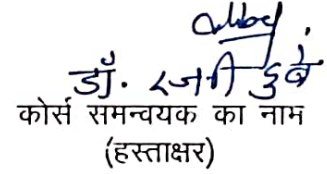 डॉ. रजनी दुबे
कोर्स समन्वयक का नाम
(हस्ताक्षर)